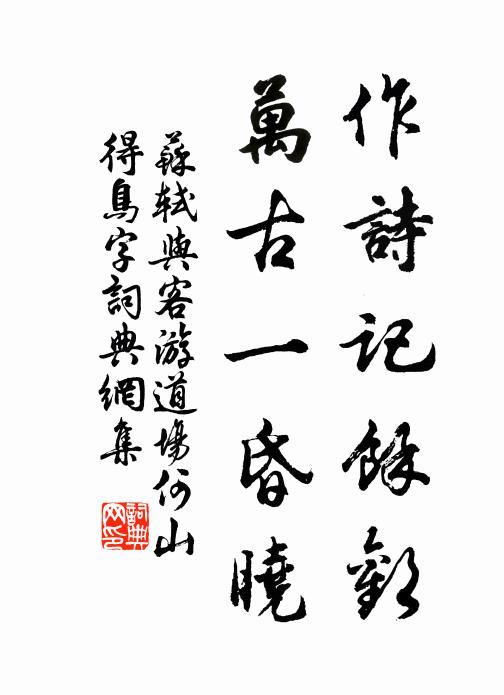 作詩記餘歡
萬古一昏曉
蘇軾與客游道場何山
得鳥字詞典網集
詞典网印